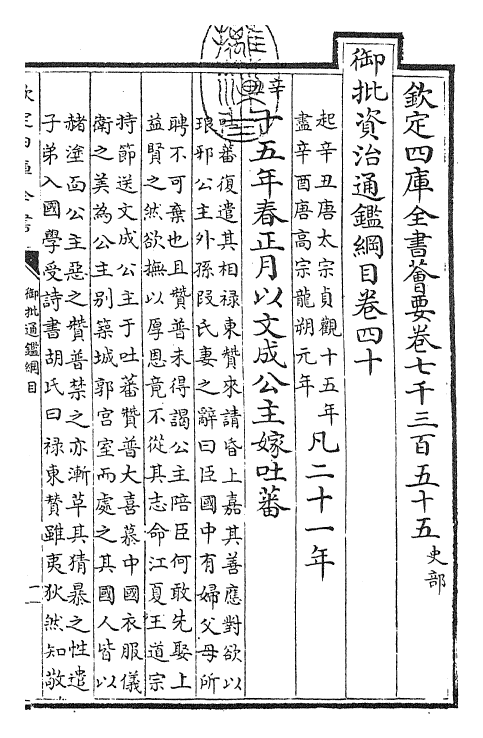 欽定四庫全書薈要卷七千三百五十五 史部
御批資治通鑑綱目卷四十
起辛丑唐太宗貞觀十五年
盡辛酉唐高宗龍朔元年
凡二十一年
辛丑
十五年春正月以文成公主嫁吐蕃
吐蕃復遣其相禄東贊來請昏上嘉其善應對欲以
琅邪公主外孫段氏妻之辭曰臣國中有婦父母所
聘不可棄也且贊普未得謁公主陪臣何敢先娶上
益賢之然欲撫以厚恩竟不從其志命江夏王道宗
持節送文成公主于吐蕃贊普大喜慕中國衣服儀
衛之美為公主别築城郭宫室而處之其國人皆以
赭塗面公主惡之贊普禁之亦漸革其猜暴之性遣
子弟入國學受詩書胡氏曰禄東贊雖夷狄然知敬
欽定四庫全書
御批通鑑綱目
一